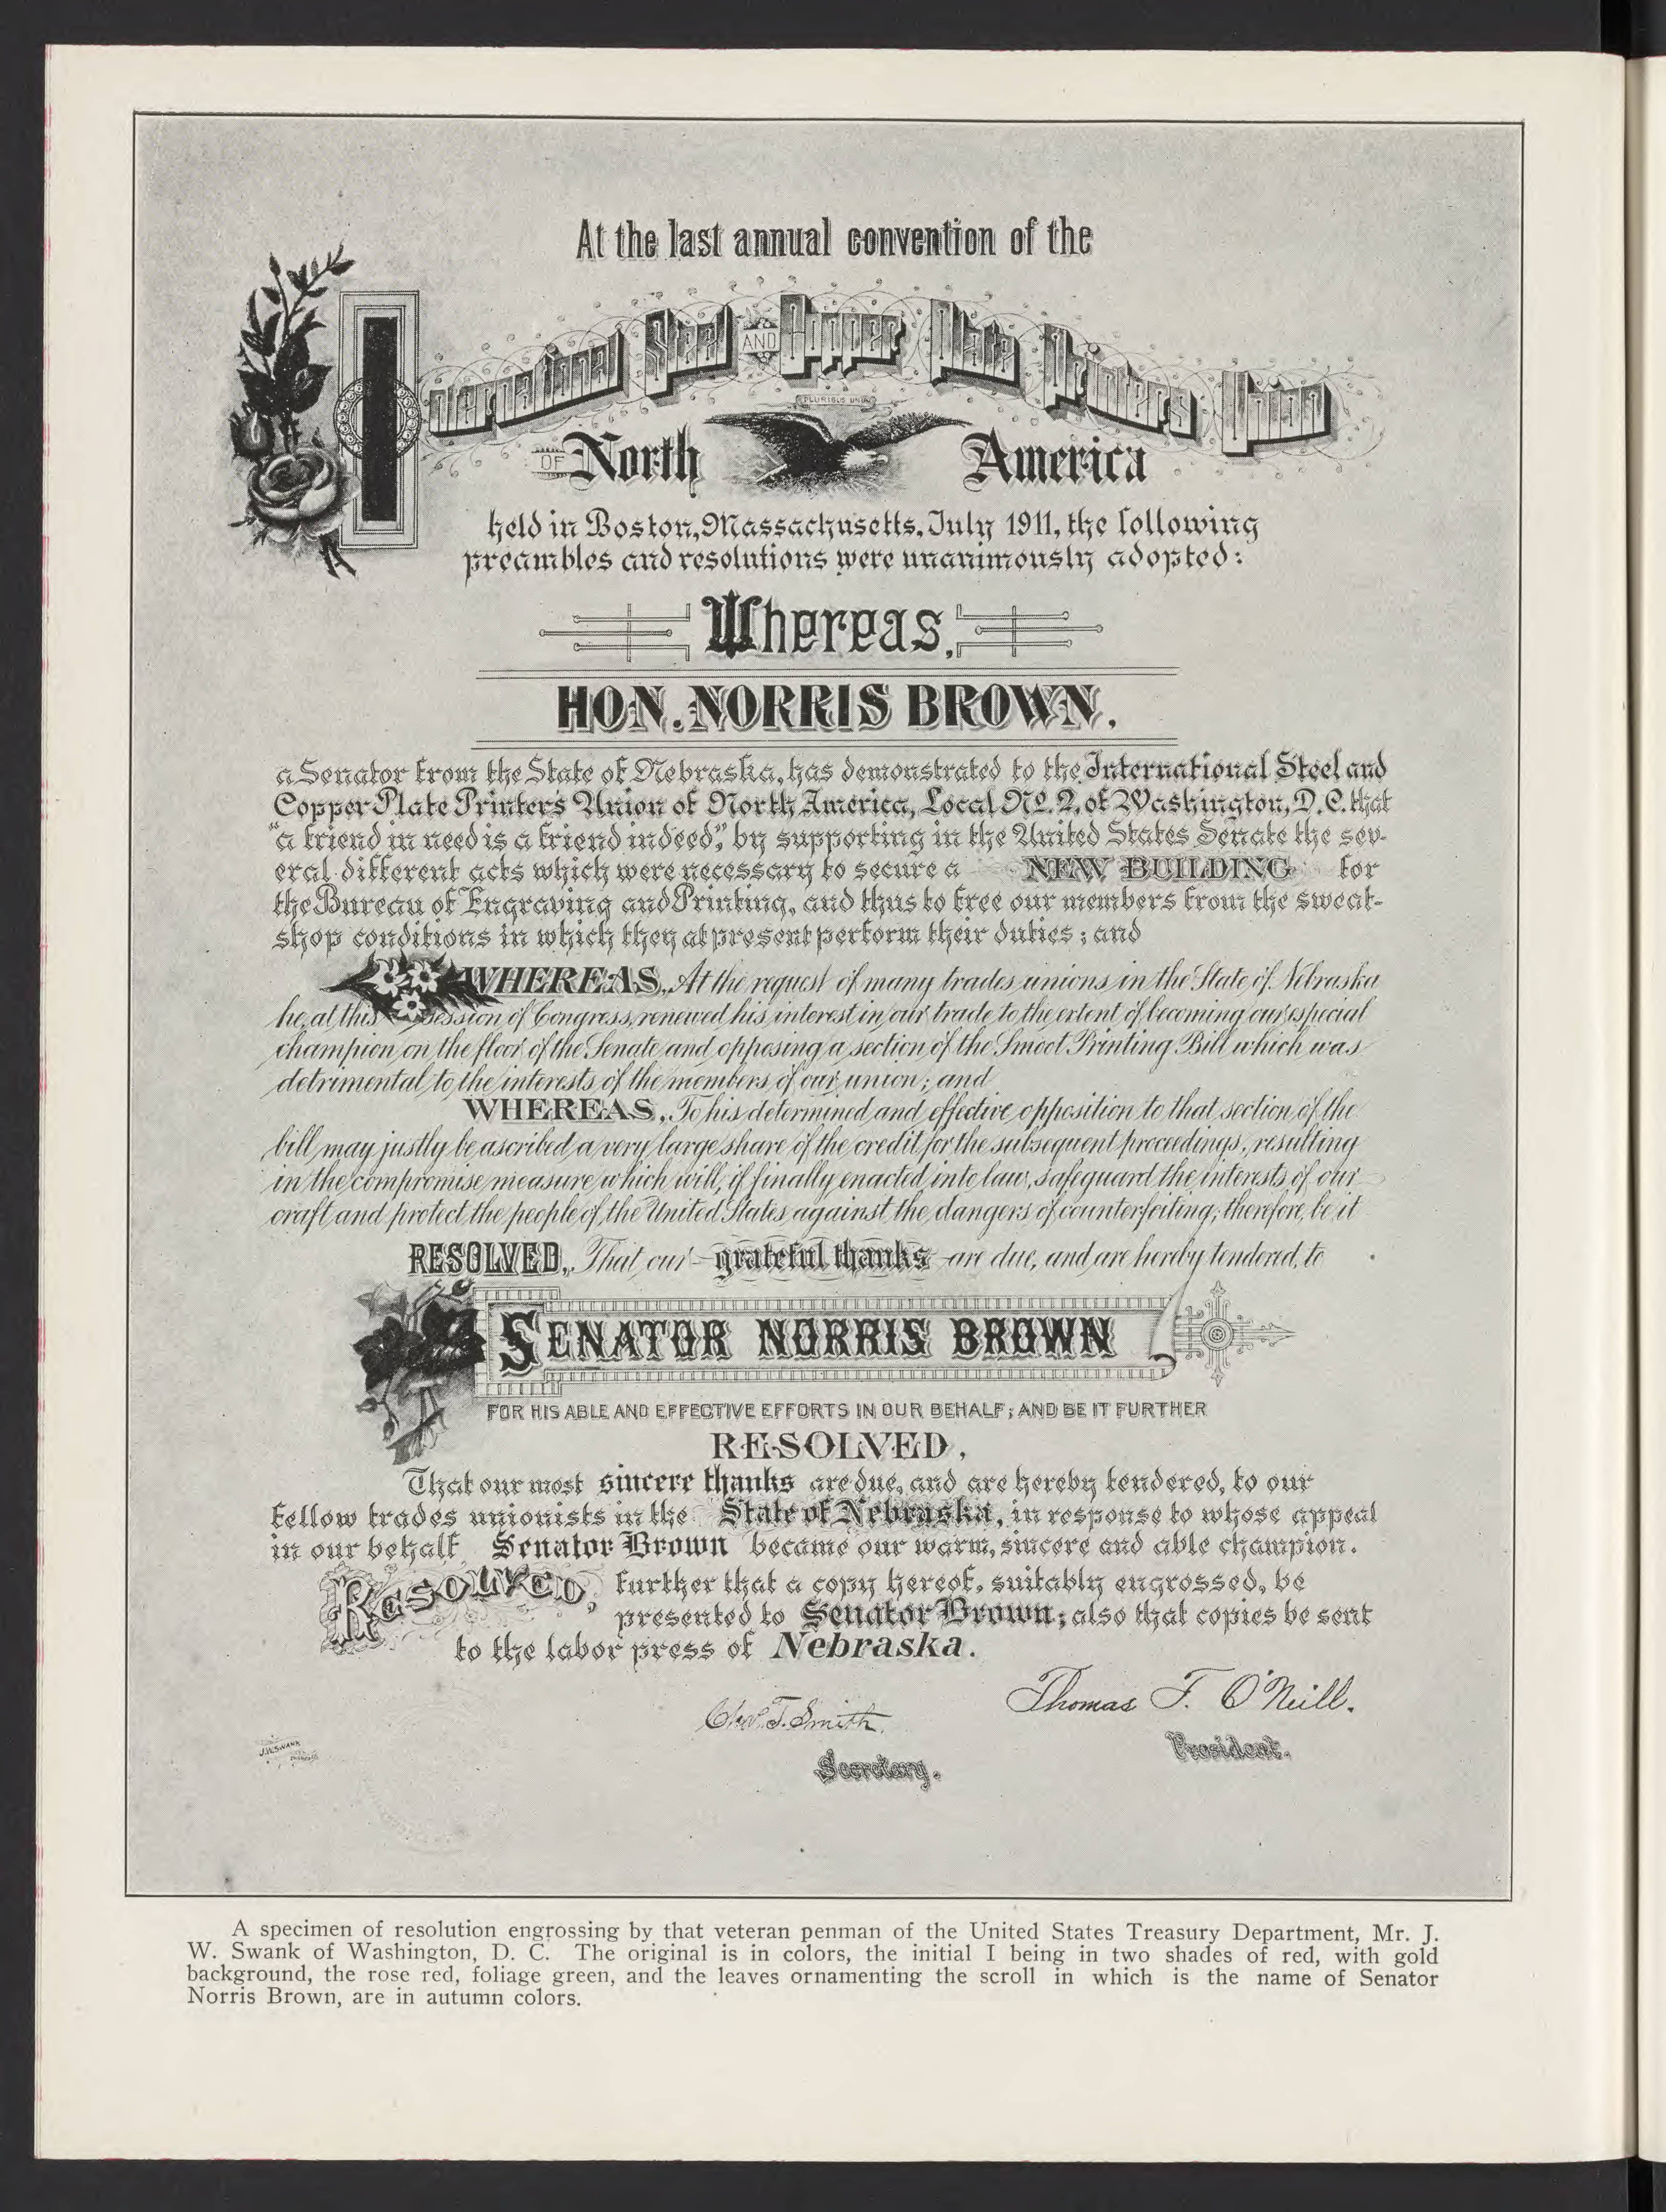 At the last annual convention of the
International Steel AND Copper Plate Printers Union
PLURIBUS UNUM
OF North America
held in Boston, Massachusetts, July 1911, the following
preambles and resolutions were unanimously adopted:
Whereas,
HON. NORRIS BROWN,
a Senator from the State of Nebraska, has demonstrated to the International Steel and
Copper Plate Printer's Union of North America, Local No. 2, of Washington, D.C. that
"a friend in need is a friend indeed", by supporting in the United States Senate the sev-
eral different acts which were necessary to secure a NEW BUILDING for
the Bureau of Engraving and Printing, and thus to free our members from the sweat-
shop conditions in which they at present perform their duties; and
WHEREAS, At the request of many trades unions in the State of Nebraska
he, at this session of Congress, renewed his interest in our trade to the extent of becoming our especial
champion on the floor of the Senate and opposing a section of the Smoot Printing Bill which was
detrimental to the interests of the members of our union; and
WHEREAS, To his determined and effective opposition to that section of the
bill may justly be ascribed a very large share of the credit for the subsequent proceedings, resulting
in the compromise measure which will, if finally enacted into law, safeguard the interests of our
craft and protect the people of the United States against the dangers of counterfeiting; therefore, be it
RESOLVED, That our grateful thanks are due, and are hereby tendered, to
SENATOR NORRIS BROWN
FOR HIS ABLE AND EFFECTIVE EFFORTS IN OUR BEHALF; AND BE IT FURTHER
RESOLVED,
That our most sincere thanks are due, and are hereby tendered, to our
fellow trades unionists in the State of Nebraska, in response to whose appeal
in our behalf Senator Brown became our warm, sincere and able champion.
RESOLVED, further that a copy hereof, suitably engrossed, be
presented to Senator Brown; also that copies be sent
to the labor press of Nebraska.
Thomas F. O'Neill.
Chas. T. Smith.
President.
J.W. SWANK
Secretary.
A specimen of resolution engrossing by that veteran penman of the United States Treasury Department, Mr. J.
W. Swank of Washington, D. C. The original is in colors, the initial I being in two shades of red, with gold
background, the rose red, foliage green, and the leaves ornamenting the scroll in which is the name of Senator
Norris Brown, are in autumn colors.